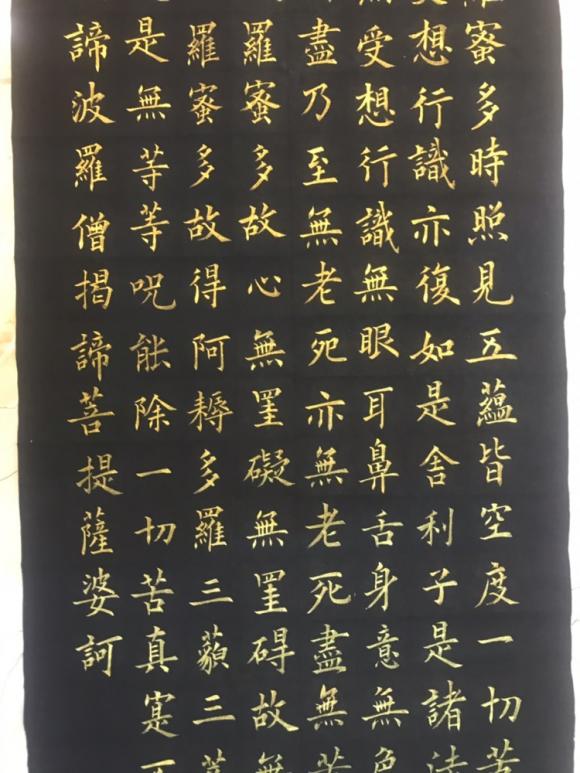 羅蜜多時照見五蘊皆空度一切苦
受想行識亦復如是舍利子是諸法
無受想行識無眼耳鼻舌身意無色
盡乃至無老死亦無老死盡無苦
羅蜜多故心無罣礙無罣碍故無
羅蜜多故得阿耨多羅三藐三菩
是無等等呪能除一切苦真寔不
諦波羅僧揭諦菩提薩婆訶